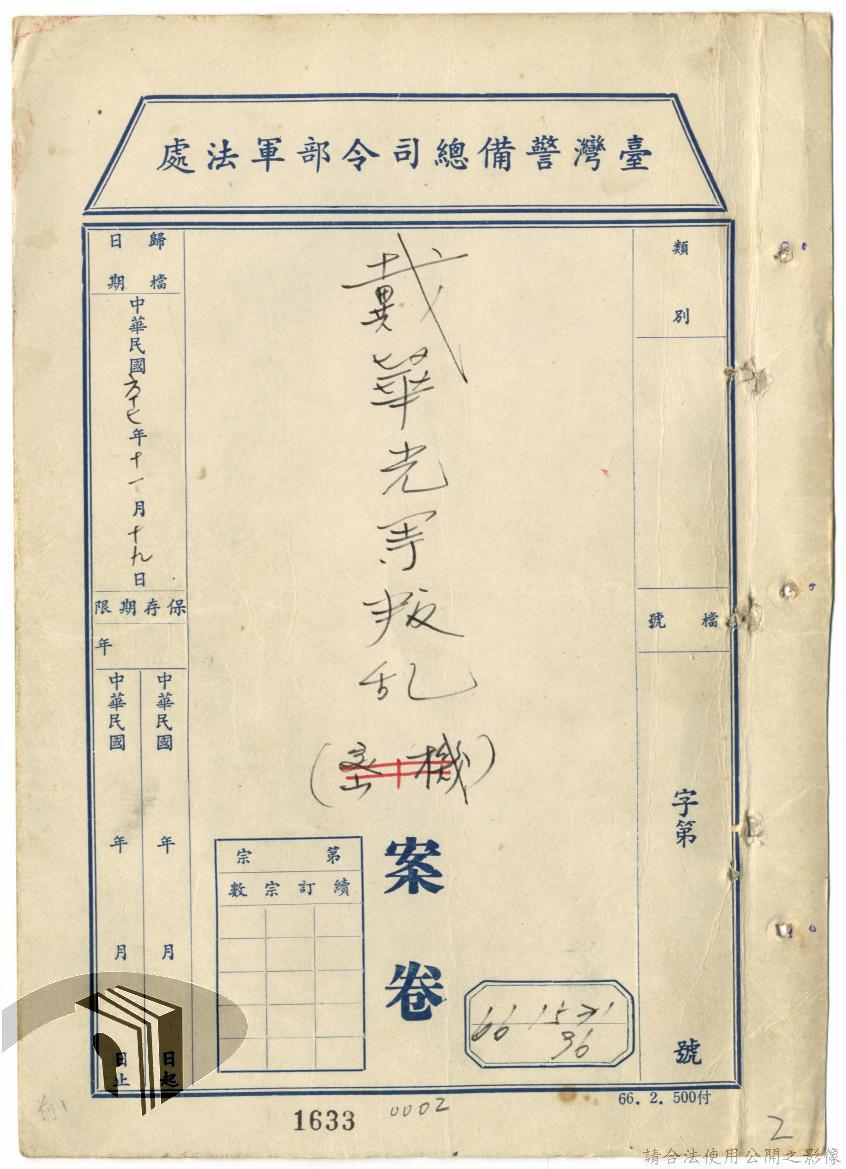 臺灣警備總司令部軍法處
類別
檔號
字第
號
戴華光等叛乱
(密機)
案卷
第宗
續訂宗數
歸檔日期
中華民國六十七年十一月十九日
保存期限
年
中華民國 年 月 日起
中華民國 年 月 日止
66 1571
36
66. 2. 500付
1633
0002
2
請合法使用公開之影像